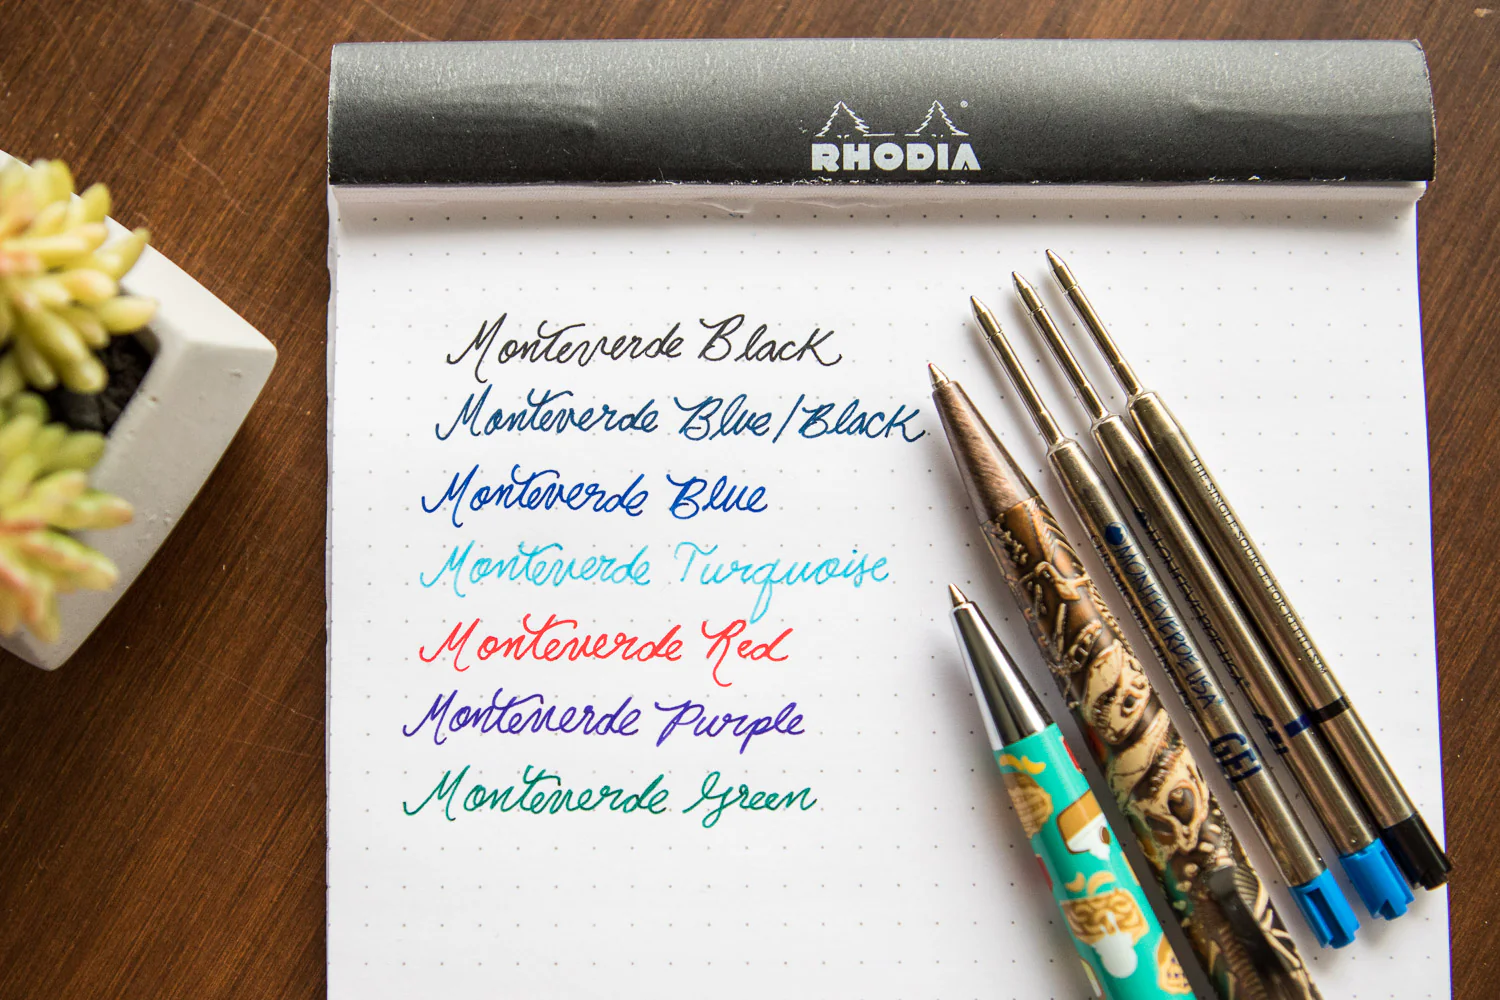 RHODIA
Monteverde Black
Monteverde Blue/Black
Monteverde Blue
Monteverde Turquoise
Monteverde Red
Monteverde Purple
Monteverde Green
MONTEVERDE USA
GEL
THE SINGLE SOURCE FOR REFILLS